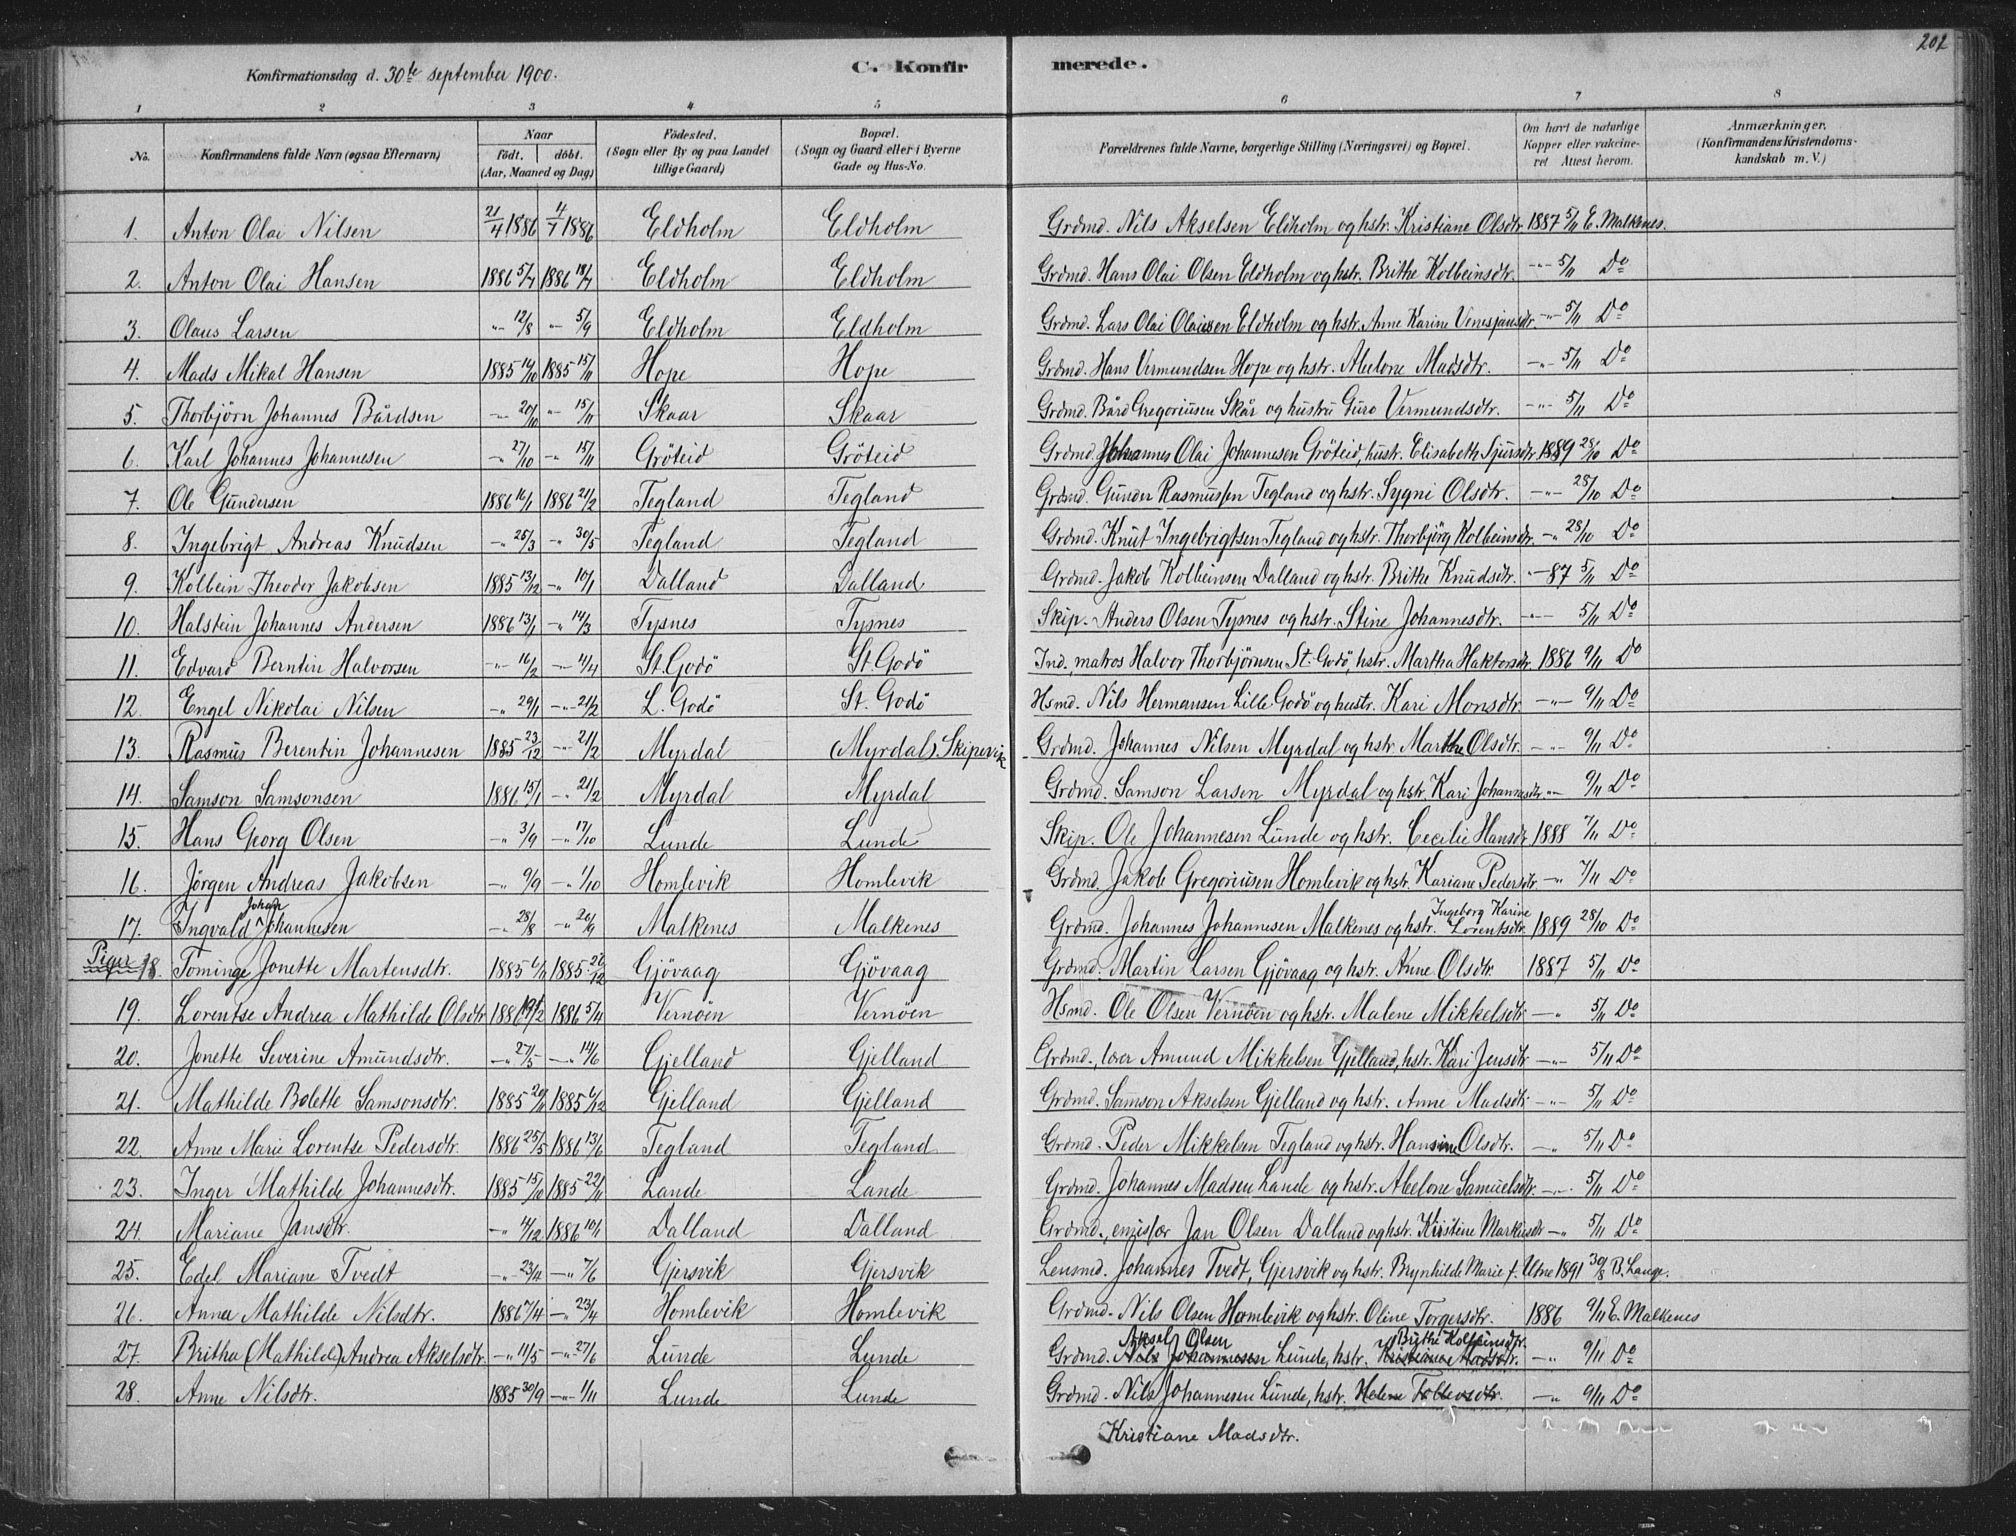 202
Konfirmationsdag d. 30te september 1900.
C. Konfirmerede.
1 2 3 4 5 6 7 8
No. Konfirmandens fulde Navn (ogsaa Efternavn) Naar födt. döbt. (Aar, Maaned og Dag) Födested. (Sogn eller By og paa Landet tillige Gaard) Bopæl. (Sogn og Gaard eller i Byerne Gade og Hus-No. Forældrenes fulde Navne, borgerlige Stilling (Næringsvei) og Bopæl. Om havt de naturlige Kopper eller vakcineret Attest herom. Anmærkninger. (Konfirmandens Kristendomskundskab m. V.)
1. Anton Olai Nilsen 21/4 1886 4/7 1886 Eldholm Eldholm Grdmd. Nils Akselsen Eldholm og hstr. Kristiane Olsdtr. 1887 5/11 E. Malkenes.
2. Anton Olai Hansen 1886 5/7 1886 18/7 Eldholm Eldholm Grdmd. Hans Olai Olsen Eldholm og hstr. Brithe Kolbeinsdtr. -"- 5/11 Do
3. Olaus Larsen -"- 12/8 -"- 5/9 Eldholm Eldholm Grdmd. Lars Olai Olaisen Eldholm og hstr. Anne Karine Venesjansdtr. -"- 5/11 Do
4. Mads Mikal Hansen 1885 16/10 1885 15/11 Hope Hope Grdmd. Hans Vermundsen Hope og hstr. Abelone Madsdtr. -"- 5/11 Do
5. Thorbjörn Johannes Bårdsen -"- 20/10 -"- 15/11 Skaar Skaar Grdmd. Bård Gregoriusen Skår og hustru Guro Vermundsdtr. -"- 5/11 Do
6. Karl Johannes Johannesen -"- 27/10 -"- 15/11 Gröteid Gröteid Grdmd. Johannes Olai Johannesen Gröteid, hustr. Elisabeth Sjursdtr. 1889 28/10 Do
7. Ole Gundersen 1886 16/1 1886 21/2 Tegland Tegland Grdmd. Gunder Rasmussen Tegland og hstr. Sygni Olsdtr. -"- 28/10 Do
8. Ingebrigt Andreas Knudsen -"- 25/3 -"- 30/5 Tegland Tegland Grdmd. Knut Ingebrigtsen Tegland og hstr. Thorbjörg Kolbeinsdtr. -"- 28/10 Do
9. Kolbein Theodor Jakobsen 1885 13/12 -"- 10/1 Dalland Dalland Grdmd. Jakob Kolbeinsen Dalland og hstr. Brithe Knudsdtr. -"- 87 5/11 Do
10. Halstein Johannes Andersen 1886 13/1 -"- 14/3 Tysnes Tysnes Skip. Anders Olsen Tysnes og hstr. Stine Johannesdtr. -"- 5/11 Do
11. Edvard Berntin Halvorsen -"- 16/2 -"- 11/4 St. Godö St. Godö Ind. matros Halvor Thorbjörnsen St. Godö, hstr. Martha Haktorsdtr 1886 9/11 Do
12. Engel Nikolai Nilsen -"- 29/1 -"- 21/2 L. Godö St. Godö Hsmd. Nils Hermansen Lille Godö og hustr. Kari Monsdtr. -"- 9/11 Do
13. Rasmus Berentin Johannesen 1885 23/12 -"- 21/2 Myrdal (Myrdal). Skipevik Grdmd. Johannes Nilsen Myrdal og hstr. Marthe Olsdtr. -"- 9/11 Do
14. Samson Samsonsen 1886 15/1 -"- 21/2 Myrdal Myrdal Grdmd. Samson Larsen Myrdal og hstr. Kari Johannesdtr. -"- 9/11 Do
15. Hans Georg Olsen -"- 3/9 -"- 17/10 Lunde Lunde Skip. Ole Johannesen Lunde og hstr. Cecilie Hansdtr 1888 7/11 Do
16. Jörgen Andreas Jakobsen -"- 9/9 -"- 1/10 Homlevik Homlevik Grdmd. Jakob Gregoriusen Homlevik og hstr. Kariane Pedersdtr. -"- 7/11 Do
17. Ingvald Johan Johannesen -"- 28/8 -"- 20/9 Malkenes Malkenes Grdmd. Johannes Johannesen Malkenes og hstr. Ingeborg Karine Lorentsdtr. 1889 28/10 Do
Piger 18. Tominge Jonette Martensdtr. 1885 6/11 1885 26/12 Gjövaag Gjövaag Grdmd. Martin Larsen Gjövaag og hstr. Anne Olsdtr. 1887 5/11 Do
19. Lorentse Andrea Mathilde Olsdtr 1886 19/2 1886 5/4 Vernöen Vernöen Hsmd. Ole Olsen Vernöen og hstr. Malene Mikkelsdtr. -"- 5/11 Do
20. Jonette Severine Amundsdtr. -"- 27/5 -"- 14/6 Gjelland Gjelland Grdmd., lærer Amund Mikkelsen Gjelland, hstr. Kari Jensdtr. -"- 5/11 Do
21. Mathilde Bolette Samsonsdtr. 1885 20/11 1885 6/12 Gjelland Gjelland Grdmd. Samson Akselsen Gjelland og hstr. Anne Madsdtr. -"- 5/11 Do
22. Anne Marie Lorentse Pedersdtr. 1886 25/5 1886 13/6 Tegland Tegland Grdmd. Peder Mikkelsen Tegland og hstr. Hansine Olsdtr. -"- 5/11 Do
23. Inger Mathilde Johannesdtr. 1885 15/10 1885 22/11 Lande Lande Grdmd. Johannes Madsen Lande og hstr. Abelone Samuelsdtr. -"- 5/11 Do
24. Mariane Jansdtr. -"- 14/12 1886 10/1 Dalland Dalland Grdmd., emisfær Jan Olsen Dalland og hstr. Kristine Markusdtr -"- 5/11 Do
25. Edel Mariane Tvedt -"- 23/4 -"- 7/6 Gjersvik Gjersvik Lensmd. Johannes Tvedt, Gjersvik og hstr. Brynhilde Marie f. Ulne 1891 30/8 B. Lange.
26. Anna Mathilde Nilsdtr. 1886 7/4 -"- 23/4 Homlevik Homlevik Grdmd. Nils Olsen Homlevik og hstr. Oline Torgersdtr. 1886 9/11 E. Malkenes
27. Britha (Mathilde) Andrea Akselsdtr. -"- 11/5 -"- 27/6 Lunde Lunde Grdmd. Aksel Olsen Nils Johannesen Lunde, hstr. Brithe Kolbeinsdtr. Kristiane Madsdtr. -"- 9/11 Do
28. Anne Nilsdtr. 1885 30/9 -"- 1/11 Lunde Lunde Grdmd. Nils Johannesen Lunde, hstr. Helene Tollevsdtr. -"- 9/11 Do
Kristiane Madsdtr.